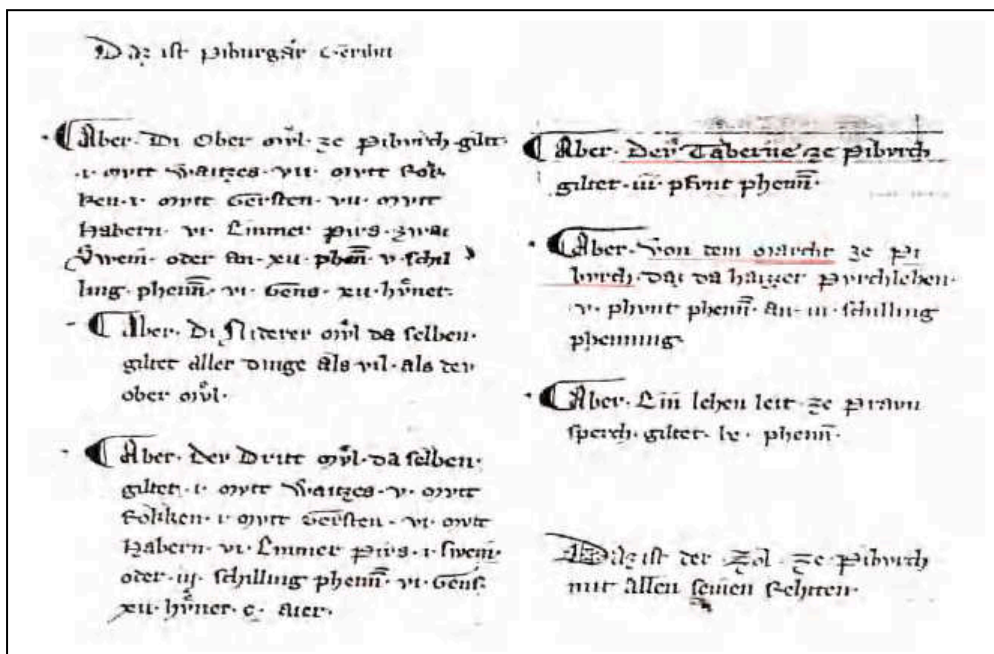 Daz ist Piburgår Gericht
Aber. Di Ober mvl. ze Pibvrch. giltet.
.i. mvtt Waitzes. vii. mvtt Rok
ken. i. mvtt Gersten. vii. mvtt
Habern. vi. Emmer Pirs. zwai
Swein. oder an. xii. phen̄. v. schil
ling. phenn̄. vi. Gens. xii. hv̊ner.
Aber. Di Niderer mv̊l da selben.
giltet aller dinge als vil. als der
ober mv̊l.
Aber. Der Dritt mv̊l. da selben.
giltet. i. mvtt Waitzes. v. mvtt
Rokken. i. mvtt Gersten. vi. mvtt
Habern. vi. Emmer Pirs. i. swein.
oder. iij. schilling phenn̄. vi. Gens.
xii. hv̊ner. c. aier.
Aber. Der Taberne ze Pibvrch
giltet. iii. pfvnt phenn̄.
Aber. von dem marcht ze Pi
bvrch. daz da haizzet Pvrchlehen.
v. phvnt phenn̄. an. iii. schilling
phenning.
Aber. Ein lehen leit. ze Pravn
sperch. giltet. lx. phenn̄.
Daz ist der. Zol. ze Pibvrch
mit allen seinen Rehten.